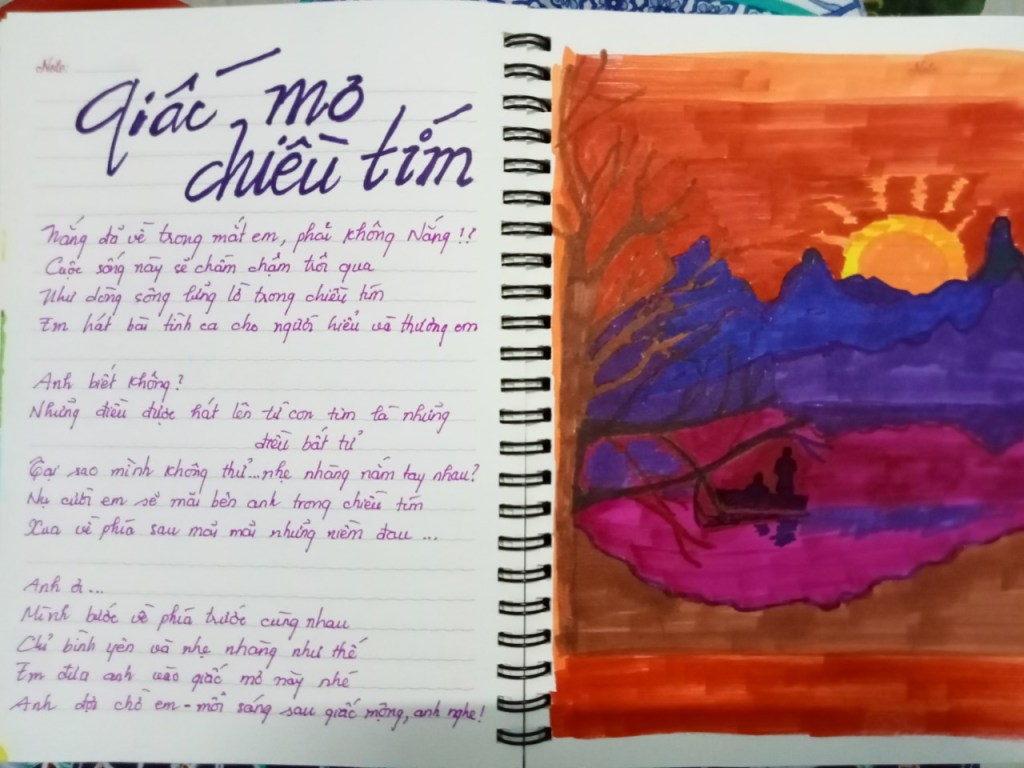 Note:
Giấc mơ
chiều tím
Nắng đỏ về trong mắt em, phải không Nắng!!
Cuộc sống này sẽ chầm chậm trôi qua
Như dòng sông lững lờ trong chiều tím
Em hát bài tình ca cho người hiểu và thương em
Anh biết không?
Những điều được hát lên từ con tim là những
điều bất tử
Tại sao mình không thử...nhẹ nhàng nắm tay nhau?
Nụ cười em sẽ mãi bên anh trong chiều tím
Xua về phía sau mãi mãi những niềm đau ...
Anh ơi...
Mình bước về phía trước cùng nhau
Chỉ bình yên và nhẹ nhàng như thế
Em đưa anh vào giấc mơ này nhé
Anh đợi chờ em - mỗi sáng sau giấc mộng, anh nghe!